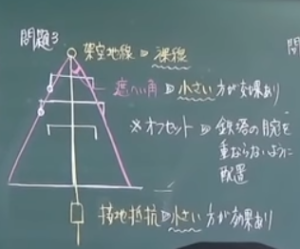 問題3
架空地線 ⇒ 裸線
遮へい角 ⇒ 小さい方が効果あり
※オフセット ⇒ 鉄塔の腕を
重ならないように
配置
接地抵抗 ⇒ 小さい方が効果あり